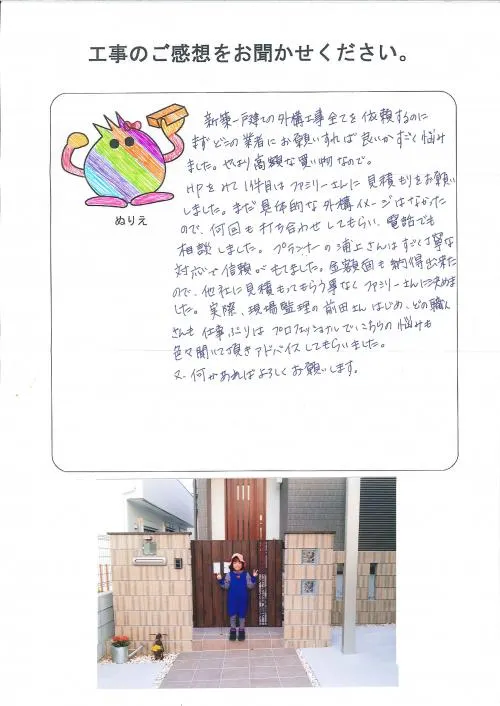 工事のご感想をお聞かせください。
ぬりえ
新築一戸建ての外構工事全てを依頼するのに
まずどこの業者にお願いすれば良いかすごく悩み
ました。やはり高額な買い物なので。
HPを見て1件目はファミリーさんに見積もりをお願い
しました。まだ具体的な外構イメージはなかった
ので、何回も打ち合わせしてもらい、電話でも
相談しました。プランナーの浦上さんはすごく丁寧な
対応で信頼がもてました。金額面も納得出来た
ので、他社に見積もってもらう事なくファミリーさんに決めま
した。実際、現場監理の前田さんはじめ、どの職人
さんも仕事ぶりはプロフェッショナルで、こちらの悩みも
色々聞いて頂きアドバイスしてもらいました。
又、何かあればよろしくお願いします。